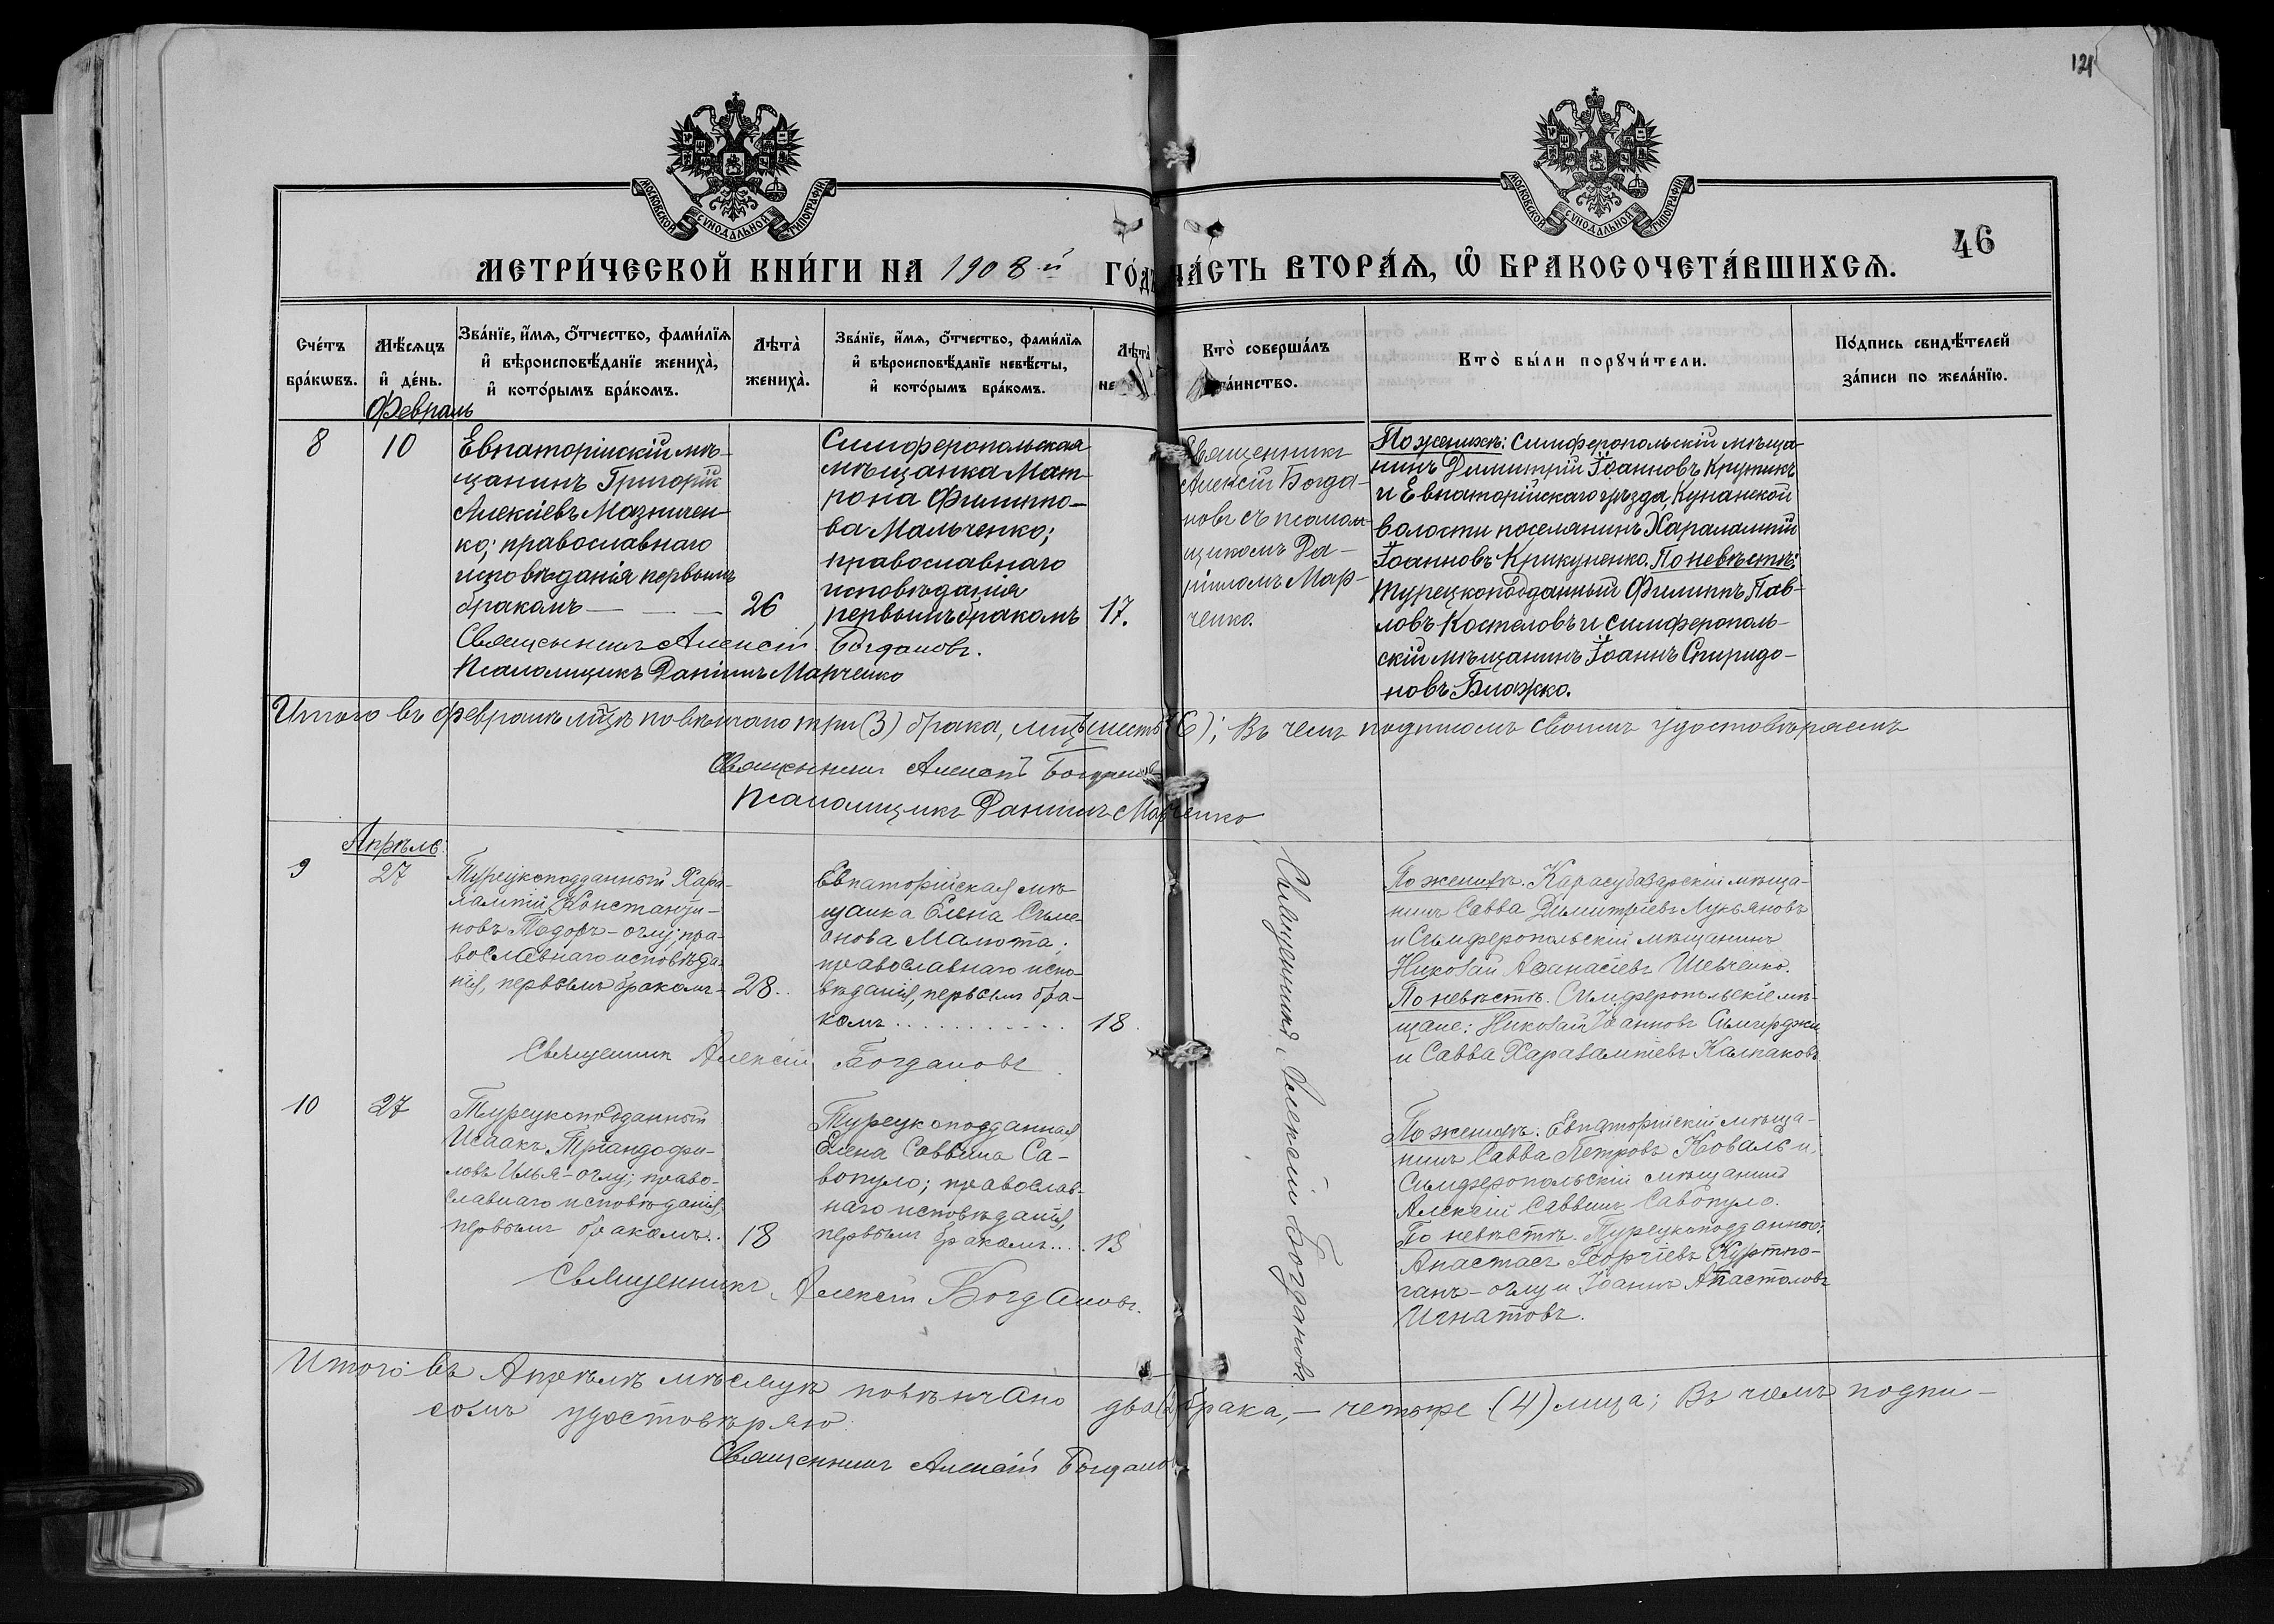 121
МОСКОВСКОЙ СѴНОДАЛЬНОЙ ТИПОГРАФІИ.
МОСКОВСКОЙ СѴНОДАЛЬНОЙ ТИПОГРАФІИ.
46
МЕТРИ́ЧЕСКОЙ КНИ́ГИ НА 1908й ГО́ДЪ
ЧА́СТЬ ВТОРА́Ѧ, Ѽ БРАКОСОЧЕТА́ВШИХСѦ.
Сче́тъ бра́кѡвъ.
Мѣ́сѧцъ и҆ де́нь.
Зва́нїе, и҆́мѧ, ѻ҆́тчество, фами́лїѧ и҆ вѣроисповѣ́данїе жениха̀, и҆ кото́рымъ бра́комъ.
Лѣта̀ жениха̀.
Зва́нїе, и҆́мѧ, ѻ҆́тчество, фами́лїѧ и҆ вѣроисповѣ́данїе невѣ́сты, и҆ кото́рымъ бра́комъ.
Лѣта̀ не
Кто̀ соверша́лъ та́инство.
Кто̀ бы́ли порꙋчи́тели.
По́дпись свидѣ́телей за́писи по жела́нїю.
Февраль
8
10
Евпаторійскій мѣ-
щанинъ Григорій
Алексіевъ Мазничен-
ко; православнаго
исповѣданія первымъ
бракомъ — — —
26
Симферопольская
мѣщанка Мат-
рона Филиппо-
ва Мальченко;
православнаго
исповѣданія
первымъ бракомъ
17.
Священникъ
Алексій Богда-
новъ съ псалом-
щикомъ Да-
ніиломъ Мар-
ченко.
По женихѣ: Симферопольскій мѣща-
нинъ Димитрій Іоанновъ Крутикъ
и Евпаторійскаго уѣзда, Кунанской
волости поселянинъ Харалампій
Іоанновъ Крикуненко. По невѣстѣ:
Турецкоподданный Филиппъ Пав-
ловъ Костеловъ и симферополь-
скій мѣщанинъ Іоаннъ Спиридо-
новъ Блажко.
Священникъ Алексій Богдановъ.
Псаломщикъ Даніилъ Марченко
Итого въ февралѣ мѣцѣ повѣнчано три (3) брака, лицъ шесть (6); Въ чемъ подписомъ своимъ удостовѣряемъ
Священникъ Алексій Богданов
Псаломщикъ Даніилъ Марченко
Апрѣль
9
27
Турецкоподданный Хара-
лампій Константи-
новъ Тодоръ-оглу; пра-
вославнаго исповѣда-
нія, первымъ бракомъ-
28..
Евпаторійская мѣ-
щанка Елена Симе-
онова Малюта;
православнаго испо-
вѣданія, первымъ бра-
комъ............
18.
Священникъ Алексій Богдановъ.
По женихѣ. Карасубазарскій мѣща-
нинъ Савва Димитріевъ Лукьяновъ
и Симферопольскій мѣщанинъ
Николай Аѳанасіевъ Шевченко.
По невѣстѣ. Симферопольскіе мѣ-
щане: Николай Іоанновъ
и Савва Харалампіевъ Калпаковъ.
Священникъ Алексій Богдановъ.
10
27
Турецкоподданный
Исаакъ Тріандофи-
ловъ Илья-оглу; право-
славнаго исповѣданія,
первымъ бракомъ..
18
Турецкоподданная
Елена Саввина Са-
вопуло; православ-
наго исповѣданія,
первымъ бракомъ....
18
По женихѣ. Евпаторійскій мѣща-
нинъ Савва Петровъ Коваль и
Симферопольскій мѣщанинъ
Алексій Саввинъ Савопуло.
По невѣстѣ. Турецкоподданные:
Анастасъ Георгіевъ Куртпо-
ганъ-оглу и Іоаннъ Апастоловъ
Игнатовъ.
Священникъ Алексій Богдановъ.
Итого въ Апрѣлѣ мѣсяцѣ повѣнчано два (2) брака, — четыре (4) лица; Въ чемъ подпи-
сомъ удостовѣряю
Священникъ Алексій Богданов